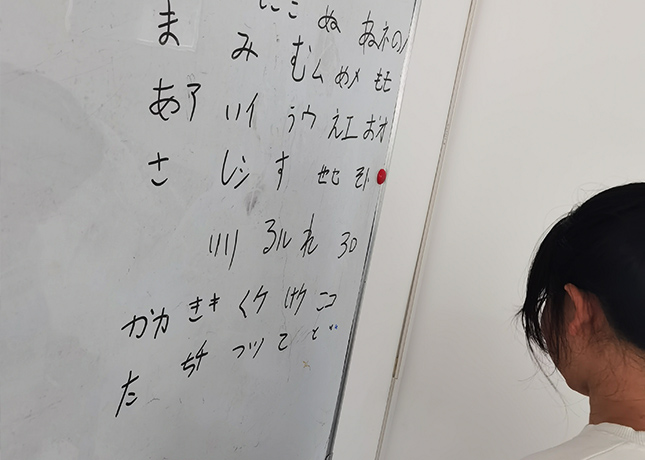 にニ ぬ ねネ の
ま み むム めメ もモ
あア いイ うウ えエ おオ
さ しシ す せセ そ
りリ るル れ ろロ
かカ きキ くク けケ こコ
た ちチ つツ て と